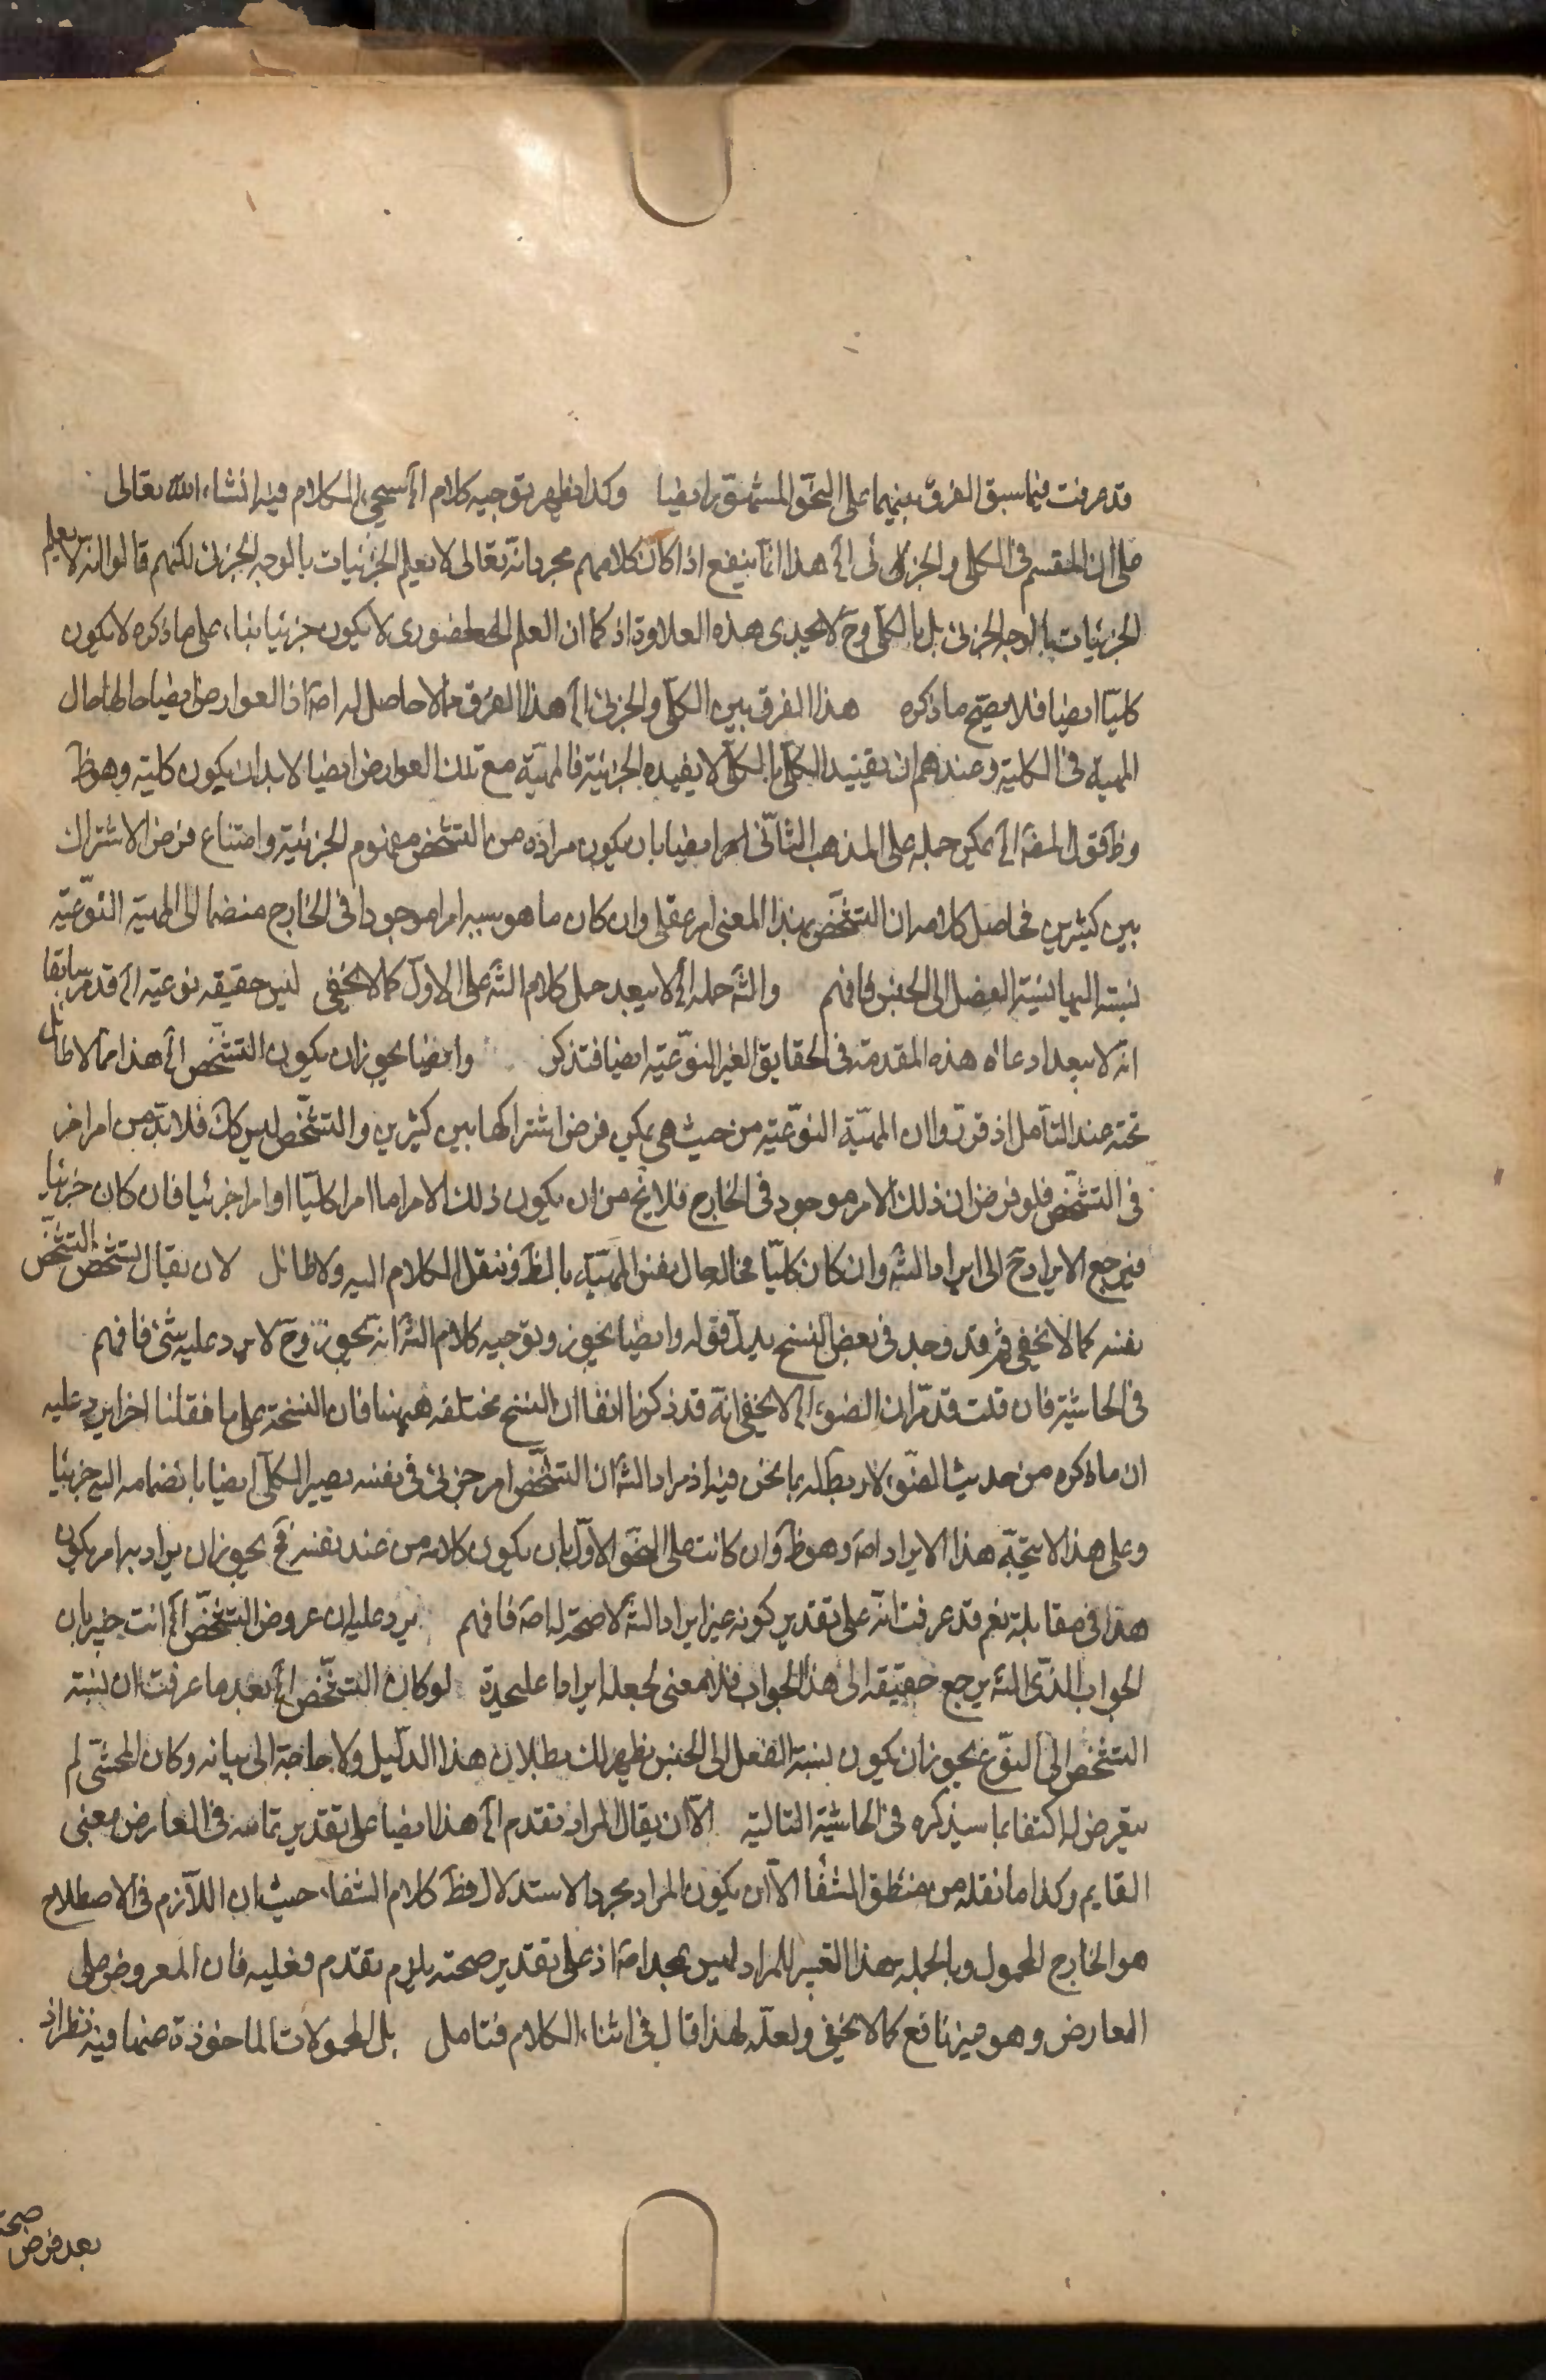 قد عرفت فيما سبق الفرق بينهما على النحو المشهور ايضا وكذا يظهر توجيه كلام الخ سيجيء الكلام فيه انشاء الله تعالى
على ان المقسم في الكلي والجزئي الخ هذا انما ينفع اذا كان كلامهم مجرد انه تعالى لا يعلم الجزئيات بالوجه الجزئي لكنهم قالوا انه لا يعلم
الجزئيات بالوجه الجزئي بل بالكلي وح لا يجدى هذه العلاوة اذ كما ان العلم الحضورى لا يكون جزئيا بناء على ما ذكره لا يكون
كليا ايضا فلا يصح ما ذكره هذا الفرق بين الكلي والجزئي الخ هذا الفرق مما لا حاصل له اصلا اذ العوارض ايضا حالها حال
المهية في الكلية وعندهم ان تقييد الكلي بالكلي لا يفيده الجزئية فالمهية مع تلك العوارض ايضا لا بد ان يكون كلية وهو ظ
وظ قول المصه الخ يمكن حمله على المذهب الثاني ايضا بان يكون مراده من التشخص مفهوم الجزئية وامتناع فرض الاشتراك
بين كثيرين فحاصل كلامه ان التشخص بهذا المعنى امر عقلي وان كان ما هو سببه امرا موجودا في الخارج منضما الى المهية النوعية
نسبته اليها نسبة الفصل الى الجنس فافهم والشه حمله الخ لا يبعد حمل كلام الشه على الاول كما لا يخفى ليس حقيقه نوعية الخ قد مر سابقا
انه لا يبعد ادعاء هذه المقدمة في الحقايق الغير النوعية ايضا فتذكر وايضا يجوز ان يكون التشخص الخ هذا مما لا طائل
تحته عند التأمل اذ قرروا ان المهية النوعية من حيث هي يمكن فرض اشتراكها بين كثيرين والتشخص ليس كك فلا بد من امر اخر
في التشخص فلو فرض ان ذلك الامر موجود في الخارج فلا يخ من ان يكون ذلك الامر اما امرا كليا او امرا جزئيا فان كان جزئيا
فيرجع الايراد ح الى ايراد الشه وان كان كليا فحاله حال نفس المهية بالظ وننقل الكلام اليه ولا طائل لان يقال تشخص التشخص
نفسه كما لا يخفى ثم قد وجد في بعض النسخ بدل قوله وايضا يجوز وتوجيه كلام الشه انه يجوز وح لا يرد عليه شئ فافهم
في الحاشية فان قلت قد مر ان الضوء الخ لا يخفى انه قد ذكرنا انفا ان النسخ مختلفه هيهنا فان النسخة على ما نقلنا اخرا يرد عليه
ان ما ذكره من حديث الضوء لا ربط له بما نحن فيه اذ مراد الشه ان التشخص امر جزئي في نفسه يصير الكلي ايضا بانضمامه اليه جزئيا
وعلى هذا لا يتجه هذا الايراد اصلا وهو ظ وان كانت على النحو الاول بان يكون كلامه من عند نفسه فح يجوز ان يراد به امر يكون
هذا في مقابلته نعم قد عرفت انه على تقدير كونه غير ايراد الشه لا صحة له اصلا فافهم يرد عليه ان عروض التشخص الخ انت خبير بان
الجواب الذى الشه يرجع حقيقه الى هذا الجواب فلا معنى لجعله ايرادا عليحدة لو كان التشخص الخ بعد ما عرفت ان نسبة
التشخص الى النوع يجوز ان يكون نسبة الفصل الى الجنس يظهر لك بطلان هذا الدليل ولا حاجة الى بيانه وكان المحشى لم
يتعرض له اكتفاء بما سيذكره في الحاشية التالية الا ان يقال المراد تقدم الخ هذا ايضا على تقدير تمامه في العارض بمعنى
القايم وكذا ما نقله من منطق الشفا الا ان يكون المراد مجرد الاستدلال فظ كلام الشفاء حيث ان اللازم في الاصطلاح
هو الخارج المحمول وبالجمله هذا التغيير للمراد ليس بمجد اصلا اذ على تقدير صحته يلزم تقدم فعليه فان المعروض على
العارض وهو غير نافع كما لا يخفى ولعله لهذا قال في اثناء الكلام فتامل بل المحمولات الماخوذة عنها فيه نظر اذ
بعد فرض صحة